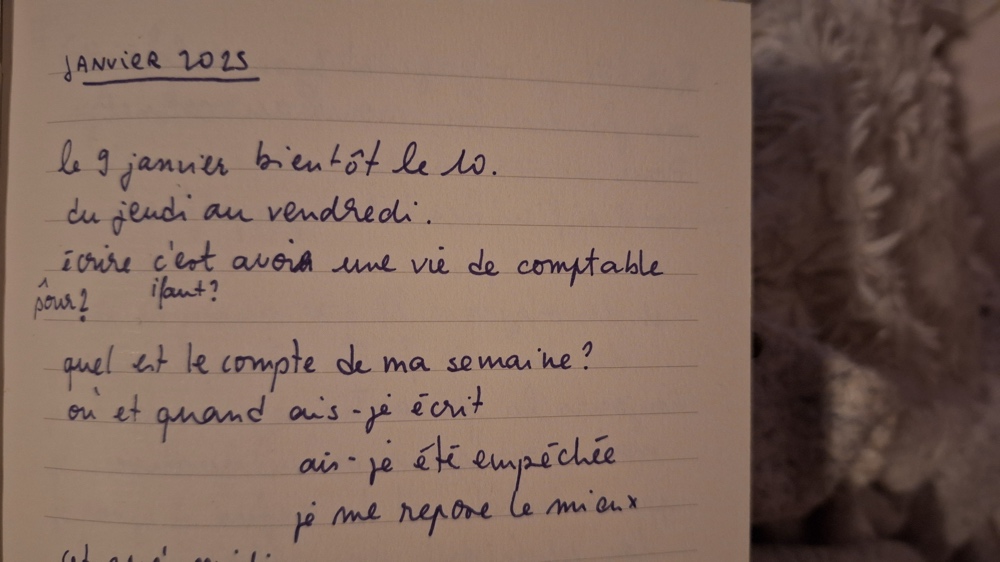 JANVIER 2025
le 9 janvier bientôt le 10.
du jeudi au vendredi.
écrire c'est avoir une vie de comptable
pour? ifaut?
quel est le compte de ma semaine?
où et quand ais-je écrit
ais-je été empéchée
je me repose le mieux